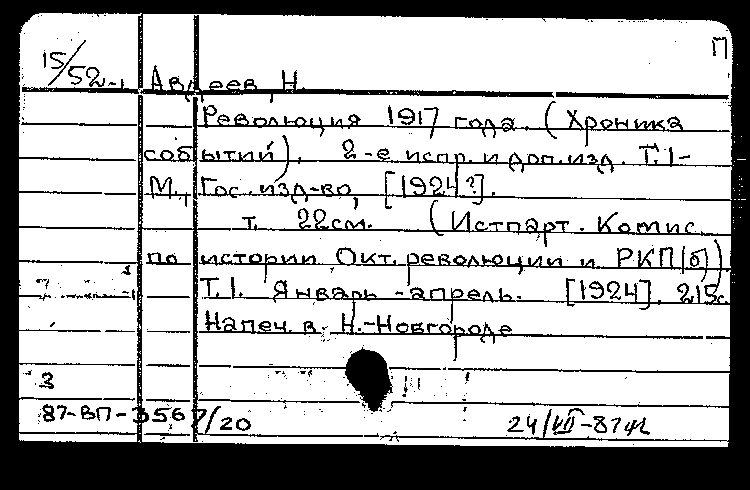 П
15/52-1 Авдеев, Н.
Революция 1917 года. (Хроника
событий). 2-е испр. и доп. изд. Т. 1-
М., Гос. изд-во, [1924?].
т. 22см. (Истпарт. Комис.
по истории Окт. революции и РКП(б))
Т.1. Январь-апрель. [1924]. 215с.
Напеч. в Н.-Новгороде
3
87-ВП-3567/20 24/VII-87